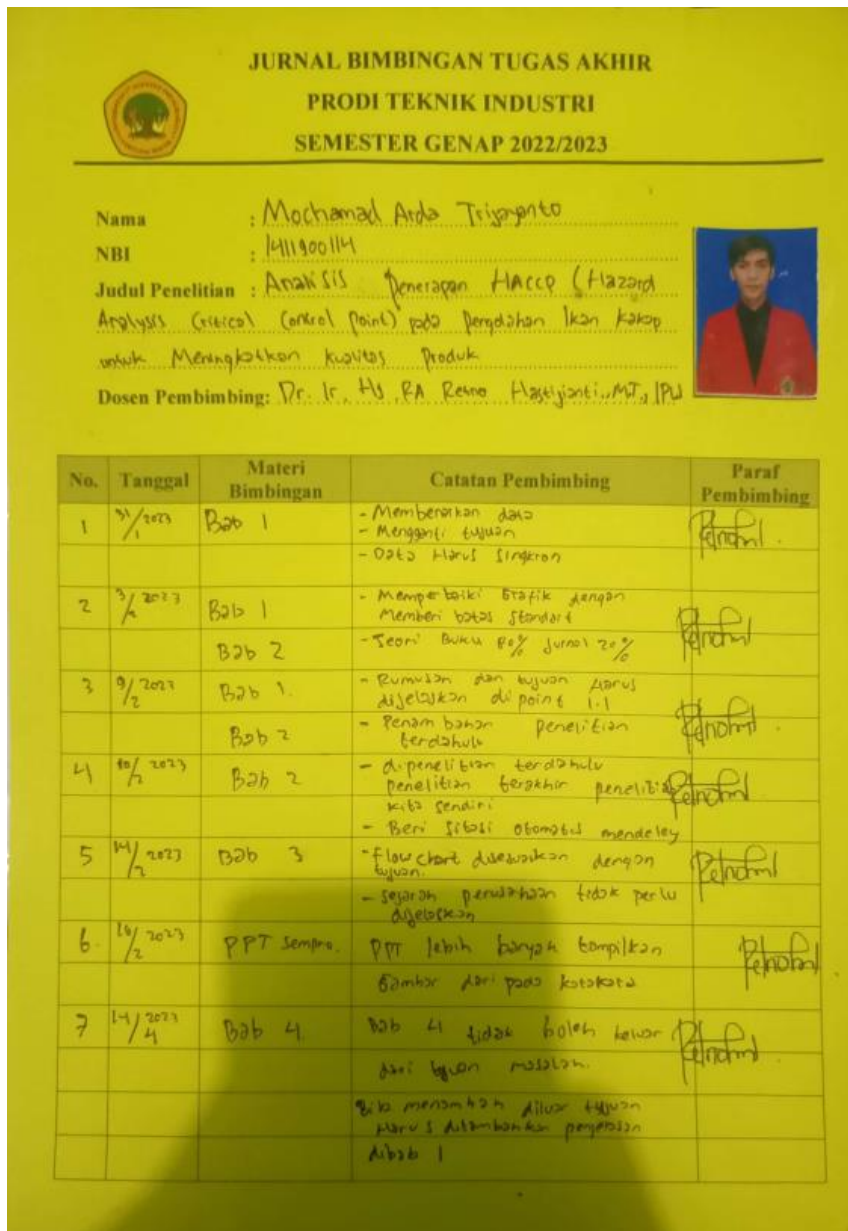 JURNAL BIMBINGAN TUGAS AKHIR
PRODI TEKNIK INDUSTRI
SEMESTER GENAP 2022/2023
Nama : Mochamad Arda Trijayanto
NBI : 1411900114
Judul Penelitian : Analisis Penerapan HACCP (Hazard
Analysis Critical Control Point) pada Pengolahan Ikan Kakap
untuk Meningkatkan Kualitas Produk
Dosen Pembimbing: Dr. Ir. Hj. RA Retno Hastijanti., MT., IPU
No. Tanggal Materi Bimbingan Catatan Pembimbing Paraf Pembimbing
1 31/1 2023 Bab 1 - Membenarkan data
- Mengganti tujuan
- Data Harus Singkron
2 3/2 2023 Bab 1 - Memperbaiki Grafik dengan
Memberi batas Standart
Bab 2 - Teori Buku 80% Jurnal 20%
3 9/2 2023 Bab 1. - Rumusan dan tujuan Harus
dijelaskan di point 1.1
Bab 2 - Penambahan penelitian
terdahulu
4 10/2 2023 Bab 2 - di penelitian terdahulu
penelitian terakhir penelitian
kita sendiri
- Beri Sitasi otomatis mendeley
5 14/2 2023 Bab 3 - flow chart disesuaikan dengan
tujuan.
- sejarah perusahaan tidak perlu
dijelaskan
6. 16/2 2023 PPT Sempro. PPT lebih banyak tampilkan
Gambar dari pada katakata
7 14/4 2023 Bab 4. Bab 4 tidak boleh keluar
dari tujuan masalah.
menambah diluar tujuan
Harus ditambahkan penjelasan
dibab 1